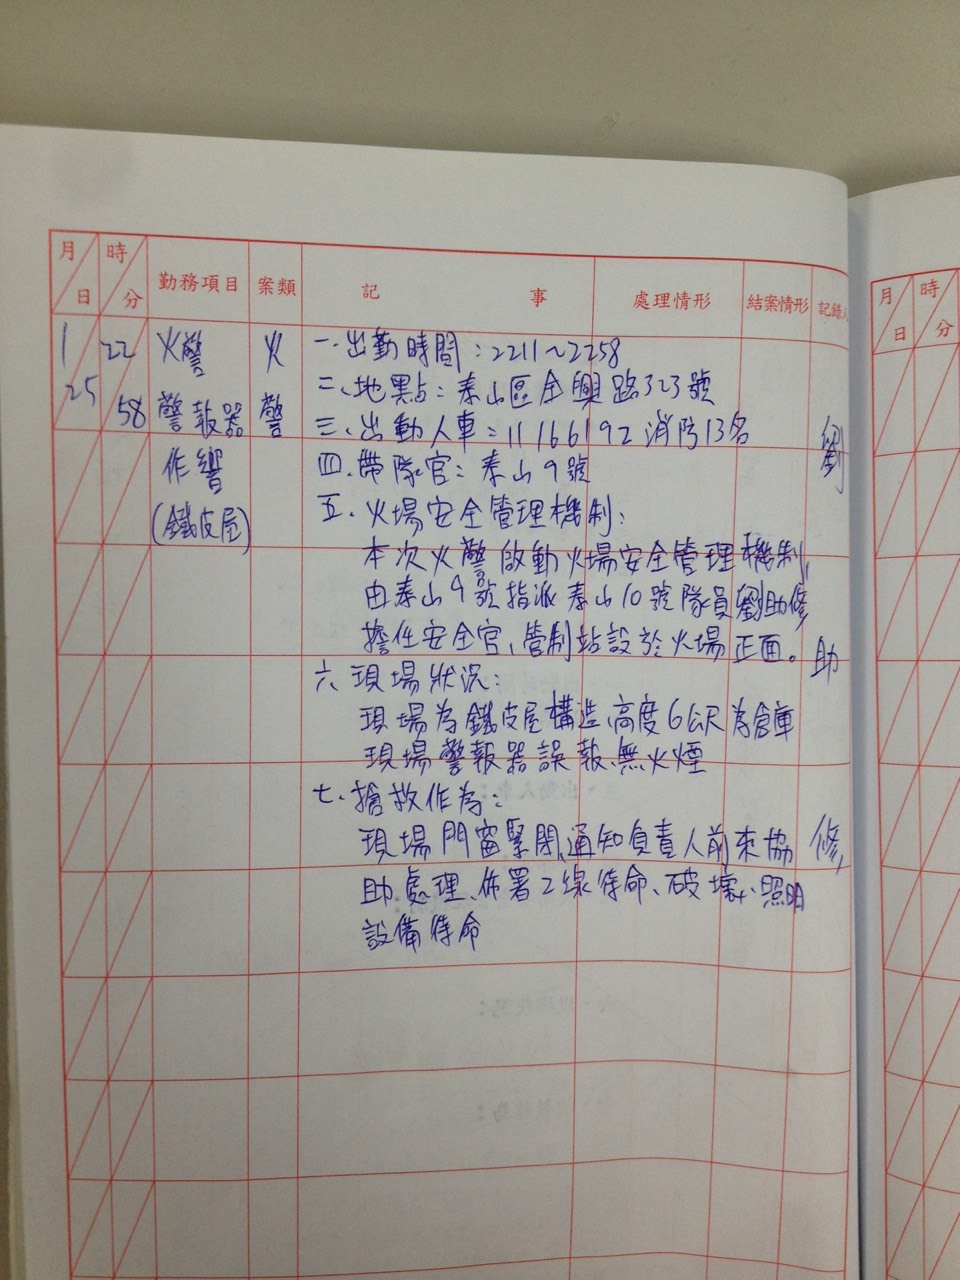 月 日 時 分 勤務項目 案類 記 事 處理情形 結案情形 記錄人
1 22 火警 火 一、出勤時間：2211～2258
25 58 警報器 警 二、地點：泰山區全興路323號
三、出動人車：11 166 192 消防13名
作響 四、帶隊官：泰山9號 劉
(鐵皮屋) 五、火場安全管理機制：
本次火警啟動火場安全管理機制，
由泰山9號指派泰山10號隊員劉助修
擔任安全官、管制站設於火場正面。 助
六、現場狀況：
現場為鐵皮屋構造、高度6公尺為倉庫
現場警報器誤報、無火煙
七、搶救作為：
現場門窗緊閉、通知負責人前來協 修
助處理、佈署2線待命、破壞、照明
設備待命
月 日 時 分